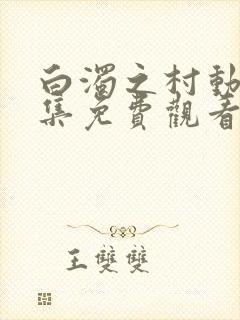 白濁之村動
集免費觀看
王雙雙